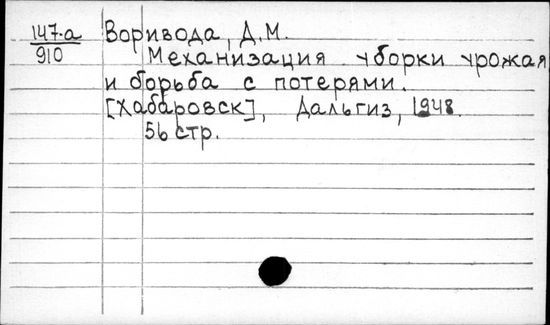 147-а Воривода, Д.М.
910 Механизация уборки урожая
и борьба с потерями.
[Хабаровск], Дальгиз, 1948.
56 стр.